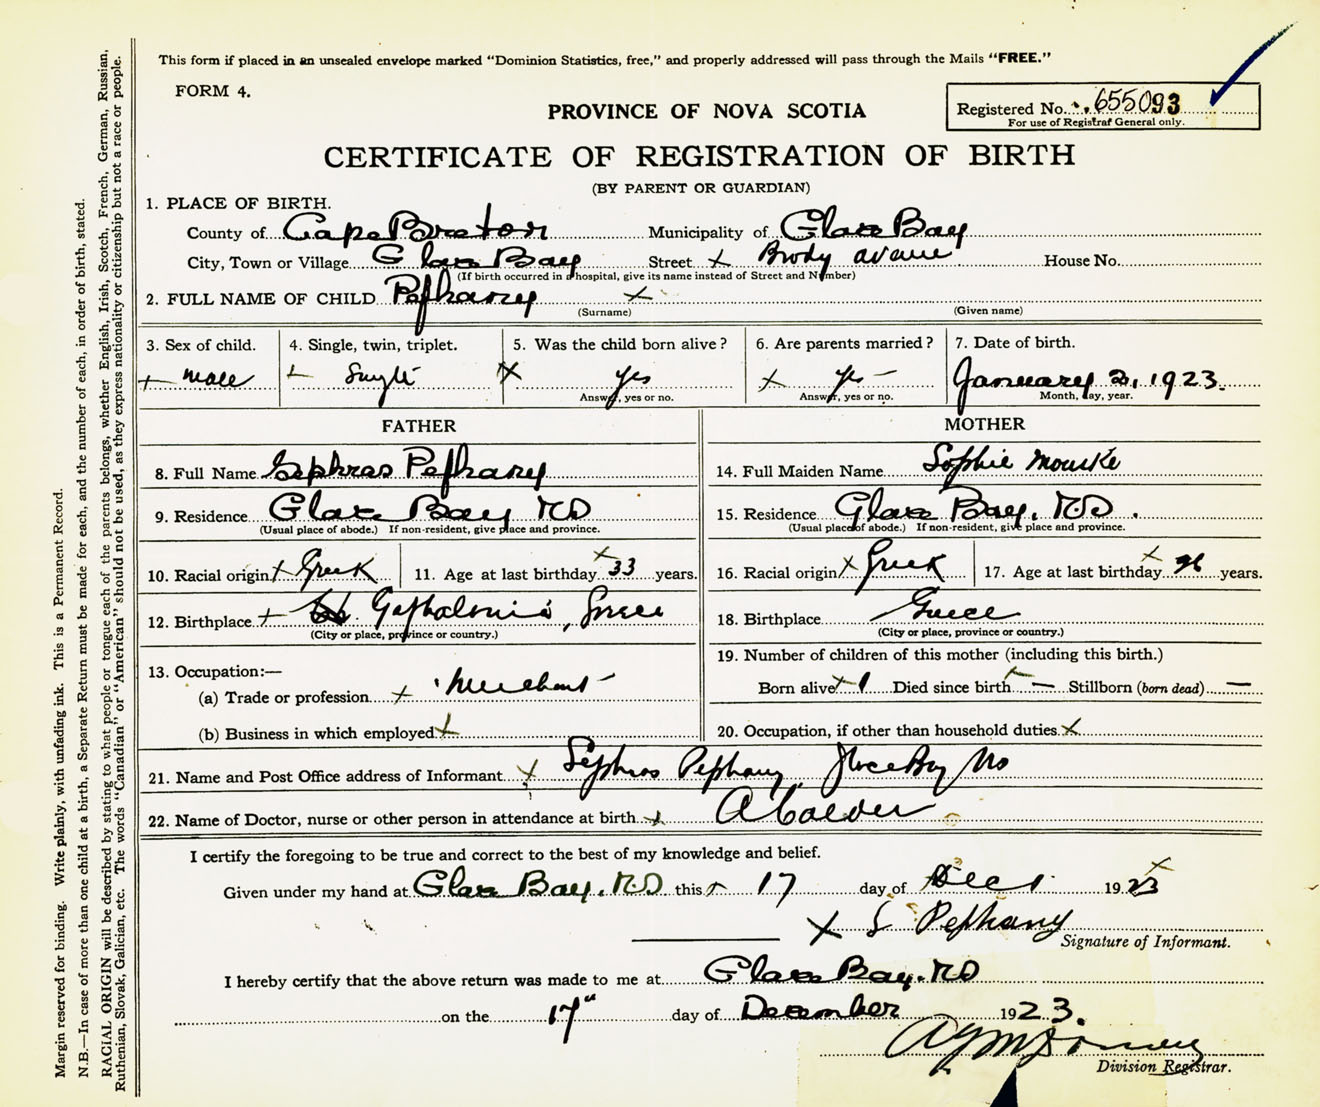 This form if placed in an unsealed envelope marked "Dominion Statistics, free," and properly addressed will pass through the Mails "FREE."
FORM 4.
PROVINCE OF NOVA SCOTIA
Registered No. 655093
For use of Registrar General only.
CERTIFICATE OF REGISTRATION OF BIRTH
(BY PARENT OR GUARDIAN)
1. PLACE OF BIRTH.
County of Cape Breton Municipality of Glace Bay
City, Town or Village Glace Bay Street x Brody avanue House No.
(If birth occurred in a hospital, give its name instead of Street and Number)
2. FULL NAME OF CHILD Pefhany x
(Surname) (Given name)
3. Sex of child. 4. Single, twin, triplet. 5. Was the child born alive? 6. Are parents married? 7. Date of birth.
x male x Single x yes x yes - January 2, 1923.
Answer, yes or no. Answer, yes or no. Month, day, year.
FATHER MOTHER
8. Full Name Pefhany 14. Full Maiden Name Sophie
9. Residence Glace Bay 15. Residence Glace Bay,
(Usual place of abode.) If non-resident, give place and province. (Usual place of abode.) If non-resident, give place and province.
10. Racial origin x Greek 11. Age at last birthday x 33 years. 16. Racial origin x Greek 17. Age at last birthday x years.
12. Birthplace x Gefhalonia, Greece 18. Birthplace Greece
(City or place, province or country.) (City or place, province or country.)
13. Occupation:— 19. Number of children of this mother (including this birth.)
(a) Trade or profession x Merchant Born alive x 1 Died since birth x — Stillborn (born dead) —
(b) Business in which employed x 20. Occupation, if other than household duties x
21. Name and Post Office address of Informant x Pephany, Glace Bay NS
22. Name of Doctor, nurse or other person in attendance at birth x A Calder
I certify the foregoing to be true and correct to the best of my knowledge and belief.
Given under my hand at Glace Bay, this x 17 day of Dec 1923 x
x S Pefhany
Signature of Informant.
I hereby certify that the above return was made to me at Glace Bay.
on the 17" day of December 1923.
Division Registrar.
Margin reserved for binding. Write plainly, with unfading ink. This is a Permanent Record.
N.B.—In case of more than one child at a birth, a Separate Return must be made for each, and the number of each, in order of birth, stated.
RACIAL ORIGIN will be described by stating to what people or tongue each of the parents belongs, whether English, Irish, Scotch, French, German, Russian,
Ruthenian, Slovak, Galician, etc. The words "Canadian" or "American" should not be used, as they express nationality or citizenship but not a race or people.